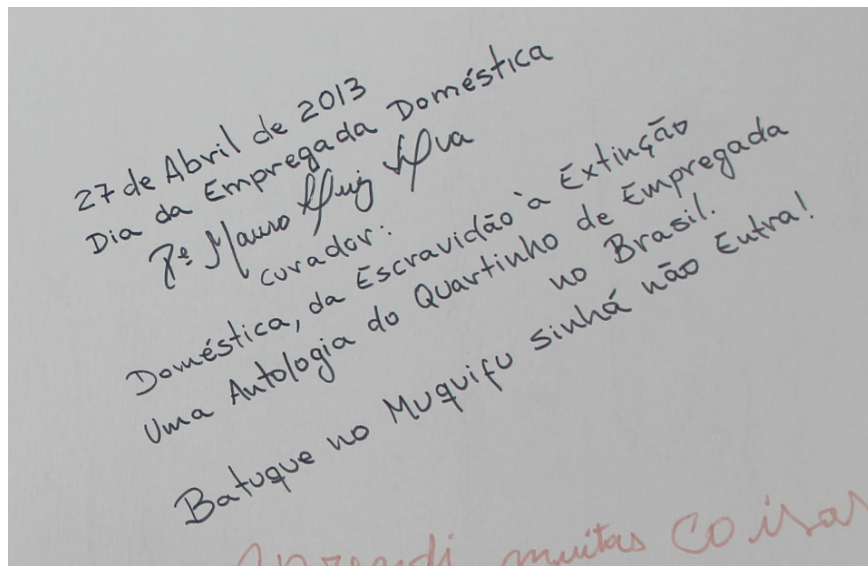 27 de Abril de 2013
Dia da Empregada Doméstica
Pe Mauro Luiz Silva
curador:
Doméstica, da Escravidão à Extinção
Uma Antologia do Quartinho de Empregada
no Brasil.
Batuque no Muquifu sinhá não Entra!
Aprendi muitas coisas